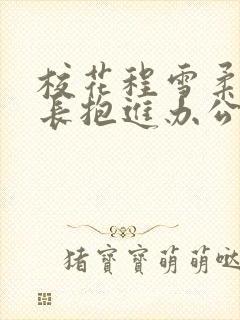 校花程雪柔
长抱进办公
猪寶寶萌萌哒